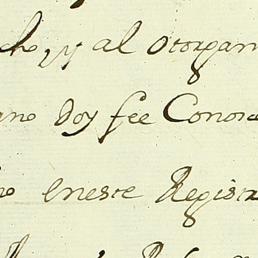 cho, y al otorgan
ano doy fee Conos
eneste Registr